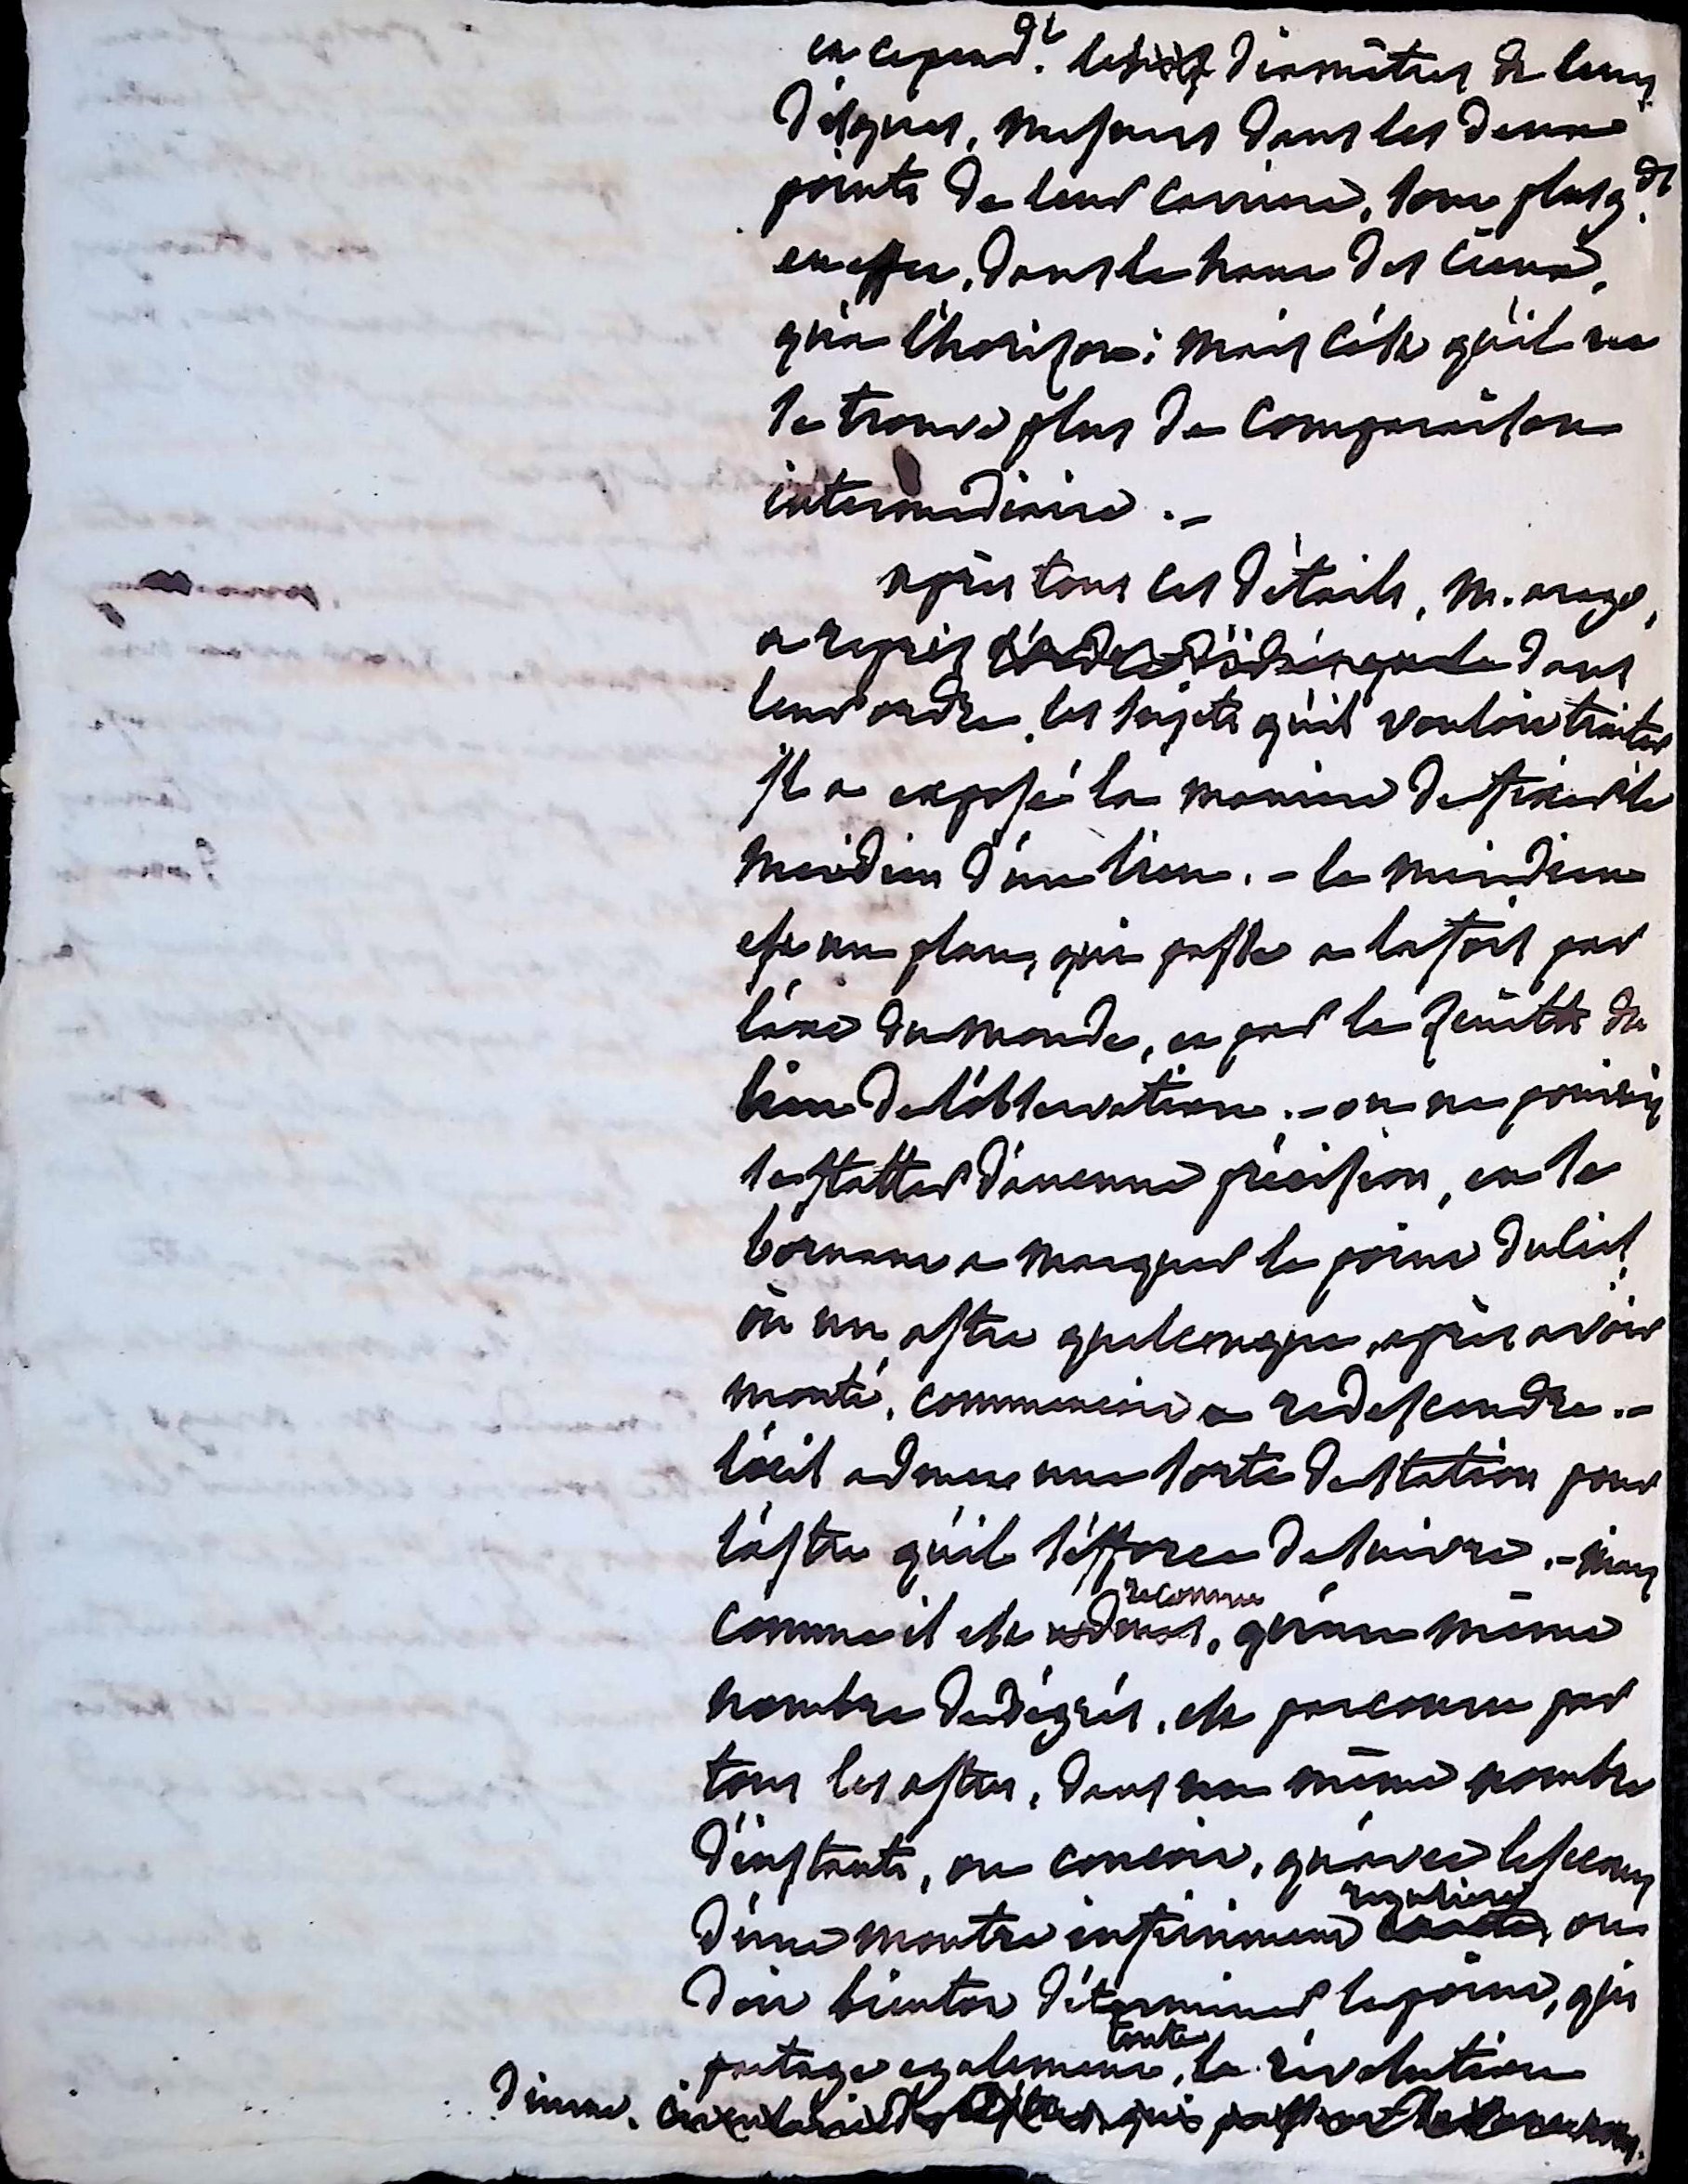 en cepend.nt les diamètres de leurs
disques, mesurés dans les deux
points de leur carriere, sont plus g.ds
en effet, dans le haut des cieux,
qu'a l'horison: mais c'est qu'il ne
se trouve plus de comparaison
intermediaire .-
après tous ces détails, M. arago,
a repris dans
leur ordre, les sujets qu'il vouloit traiter
Il a exposé la maniere de fixer le
meridien d'un lieu. - le meridien
est un plan, qui passe a la fois par
l'axe du monde, et par le zenith du
lieu de l'observation. - on ne pouvoit
se flatter d'aucune précision, en se
bornant a marquer le point du ciel,
où un astre quelconque, après avoir
monté, commencoit a redescendre. -
l'oeil admet une sorte de station pour
l'astre qu'il s'efforce de suivre. - mais
comme il est reconnu, qu'un même
nombre de dégrés, est parcouru par
tous les astres, dans un même nombre
d'instants, on concoit, qu'avec le secours
d'une montre infiniment reguliere, on
doit bientot déterminer le point, qui
partage egalement, toute la révolution
diurne.